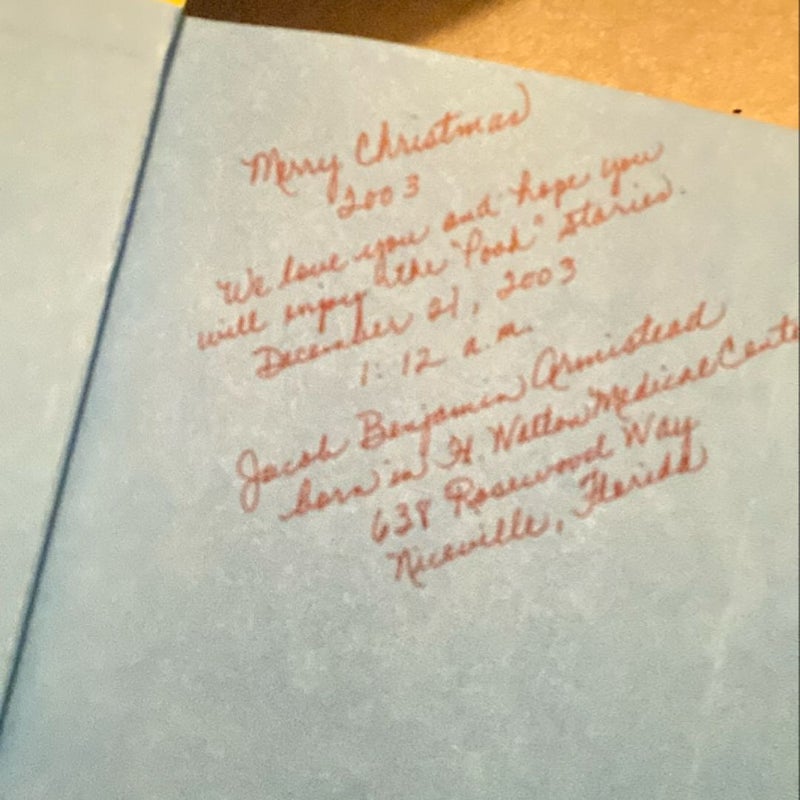 Merry Christmas
2003
We love you and hope you
will enjoy the "Pooh" stories.
December 21, 2003
1:12 a.m.
Jacob Benjamin Armistead
born in Ft. Walton Medical Cente
638 Rosewood Way
Niceville, Florida